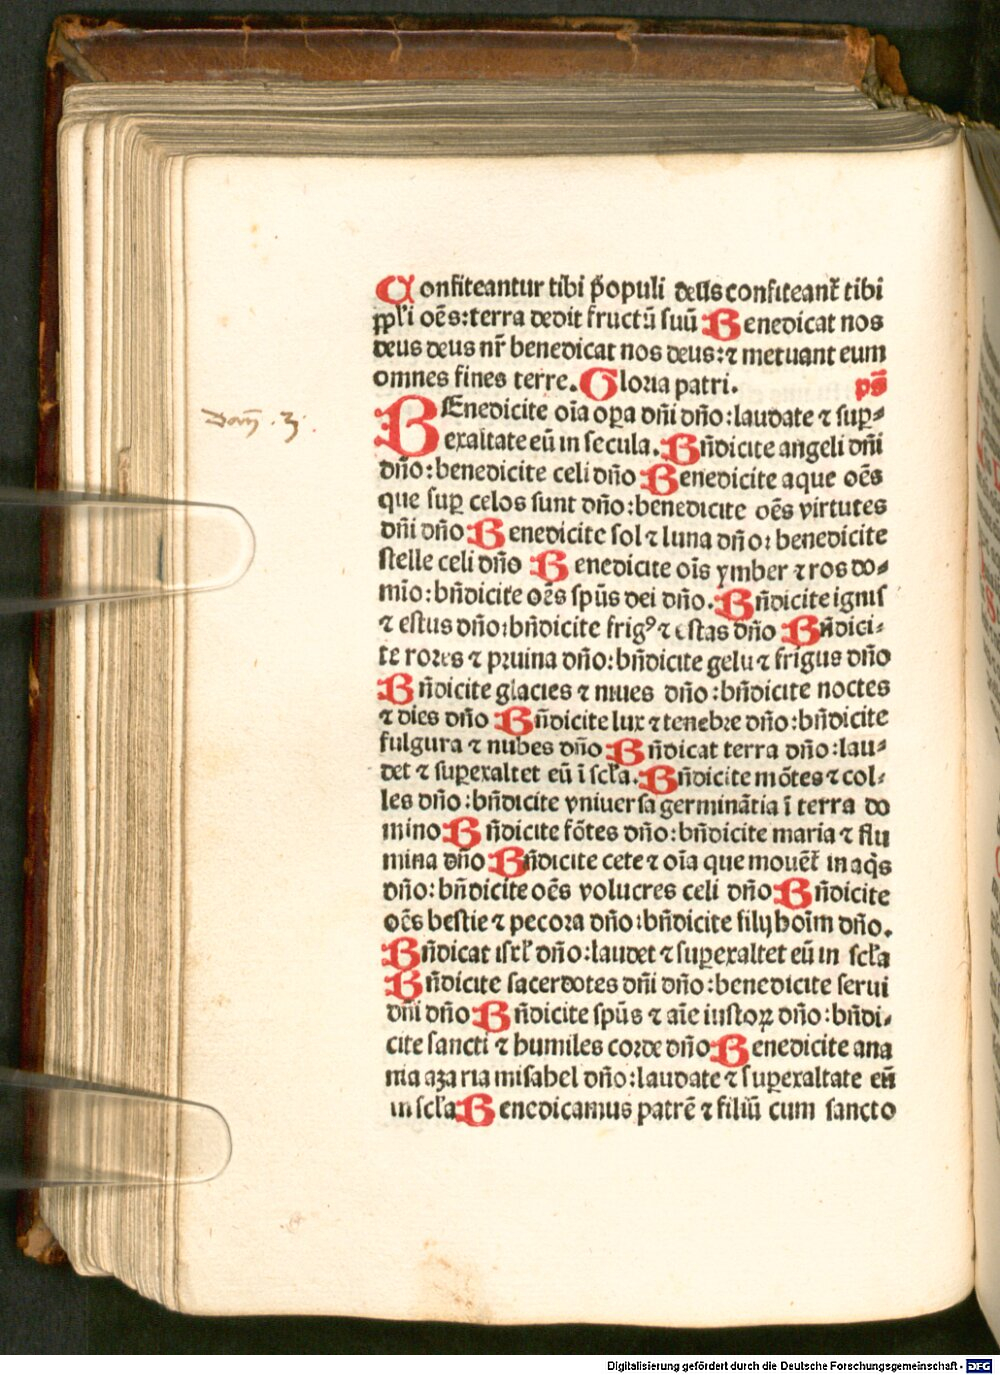 Confiteantur tibi p̄opuli deus confiteant᷑ tibi
ppl̄i oēs:terra dedit fructū suū Benedicat nos
deus deus nr̄ benedicat nos deus:⁊ metuant eum
omnes fines terre. Gloria patri. ps̄
BEnedicite oīa oꝑa dn̄i dn̄o:laudate ⁊ suꝑ⸗
exaltate eū in secula. Bn̄dicite angeli dn̄i
dn̄o:benedicite celi dn̄o Benedicite aque oēs
que suꝑ celos sunt dn̄o:benedicite oēs virtutes
dn̄i dn̄o Benedicite sol ⁊ luna dn̄o:benedicite
stelle celi dn̄o Benedicite oīs ymber ⁊ ros do⸗
mīo:bn̄dicite oēs sp̄us dei dn̄o. Bn̄dicite ignis
⁊ estus dn̄o:bn̄dicite frigꝰ ⁊ estas dn̄o Bn̄dici⸗
te rores ⁊ pruina dn̄o:bn̄dicite gelu ⁊ frigus dn̄o
Bn̄dicite glacies ⁊ niues dn̄o:bn̄dicite noctes
⁊ dies dn̄o Bn̄dicite lux ⁊ tenebre dn̄o:bn̄dicite
fulgura ⁊ nubes dn̄o Bn̄dicat terra dn̄o:lau⸗
det ⁊ suꝑexaltet eū ī scl̄a. Bn̄dicite mōtes ⁊ col⸗
les dn̄o:bn̄dicite vniuersa germinātia ī terra do
mino Bn̄dicite fōtes dn̄o:bn̄dicite maria ⁊ flu
mina dn̄o Bn̄dicite cete ⁊ oīa que mouēt᷑ in aq̄s
dn̄o:bn̄dicite oēs volucres celi dn̄o Bn̄dicite
oēs bestie ⁊ pecora dn̄o:bn̄dicite filij hoīm dn̄o.
Bn̄dicat isrl̄ dn̄o:laudet ⁊ suꝑexaltet eū in scl̄a
Bn̄dicite sacerdotes dn̄i dn̄o:benedicite serui
dn̄i dn̄o Bn̄dicite sp̄us ⁊ aīe iustoꝝ dn̄o:bn̄di⸗
cite sancti ⁊ humiles corde dn̄o Benedicite ana
nia azaria misahel dn̄o:laudate ⁊ suꝑexaltate eū
in scl̄a Benedicamus patrē ⁊ filiū cum sancto
Digitalisierung gefördert durch die Deutsche Forschungsgemeinschaft - DFG